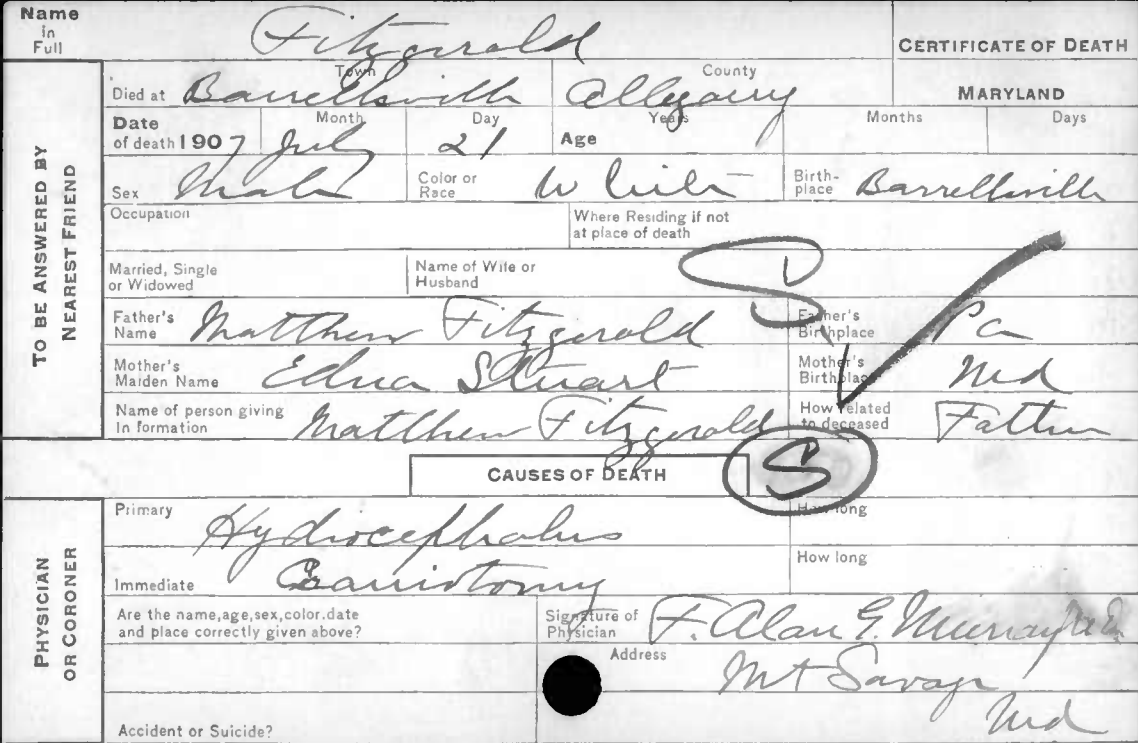 Name in Full Fitzgerald
CERTIFICATE OF DEATH
TO BE ANSWERED BY NEAREST FRIEND
Died at Barrellsville Town Allegany County MARYLAND
Date of death 1907 July Month 21 Day Age Years Months Days
Sex Male Color or Race White Birthplace Barrellsville
Occupation Where Residing if not at place of death
Married, Single or Widowed Name of Wife or Husband
S
Father's Name Matthew Fitzgerald Father's Birthplace Pa
Mother's Maiden Name Edna Stuart Mother's Birthplace Md
Name of person giving In formation Matthew Fitzgerald How related to deceased Father
CAUSES OF DEATH S
PHYSICIAN OR CORONER
Primary Hydrocephalus How long
Immediate Craniotomy How long
Are the name,age,sex,color.date and place correctly given above? Signature of Physician F. Alan G. Murray M.D.
Address Mt Savage
Md
Accident or Suicide?